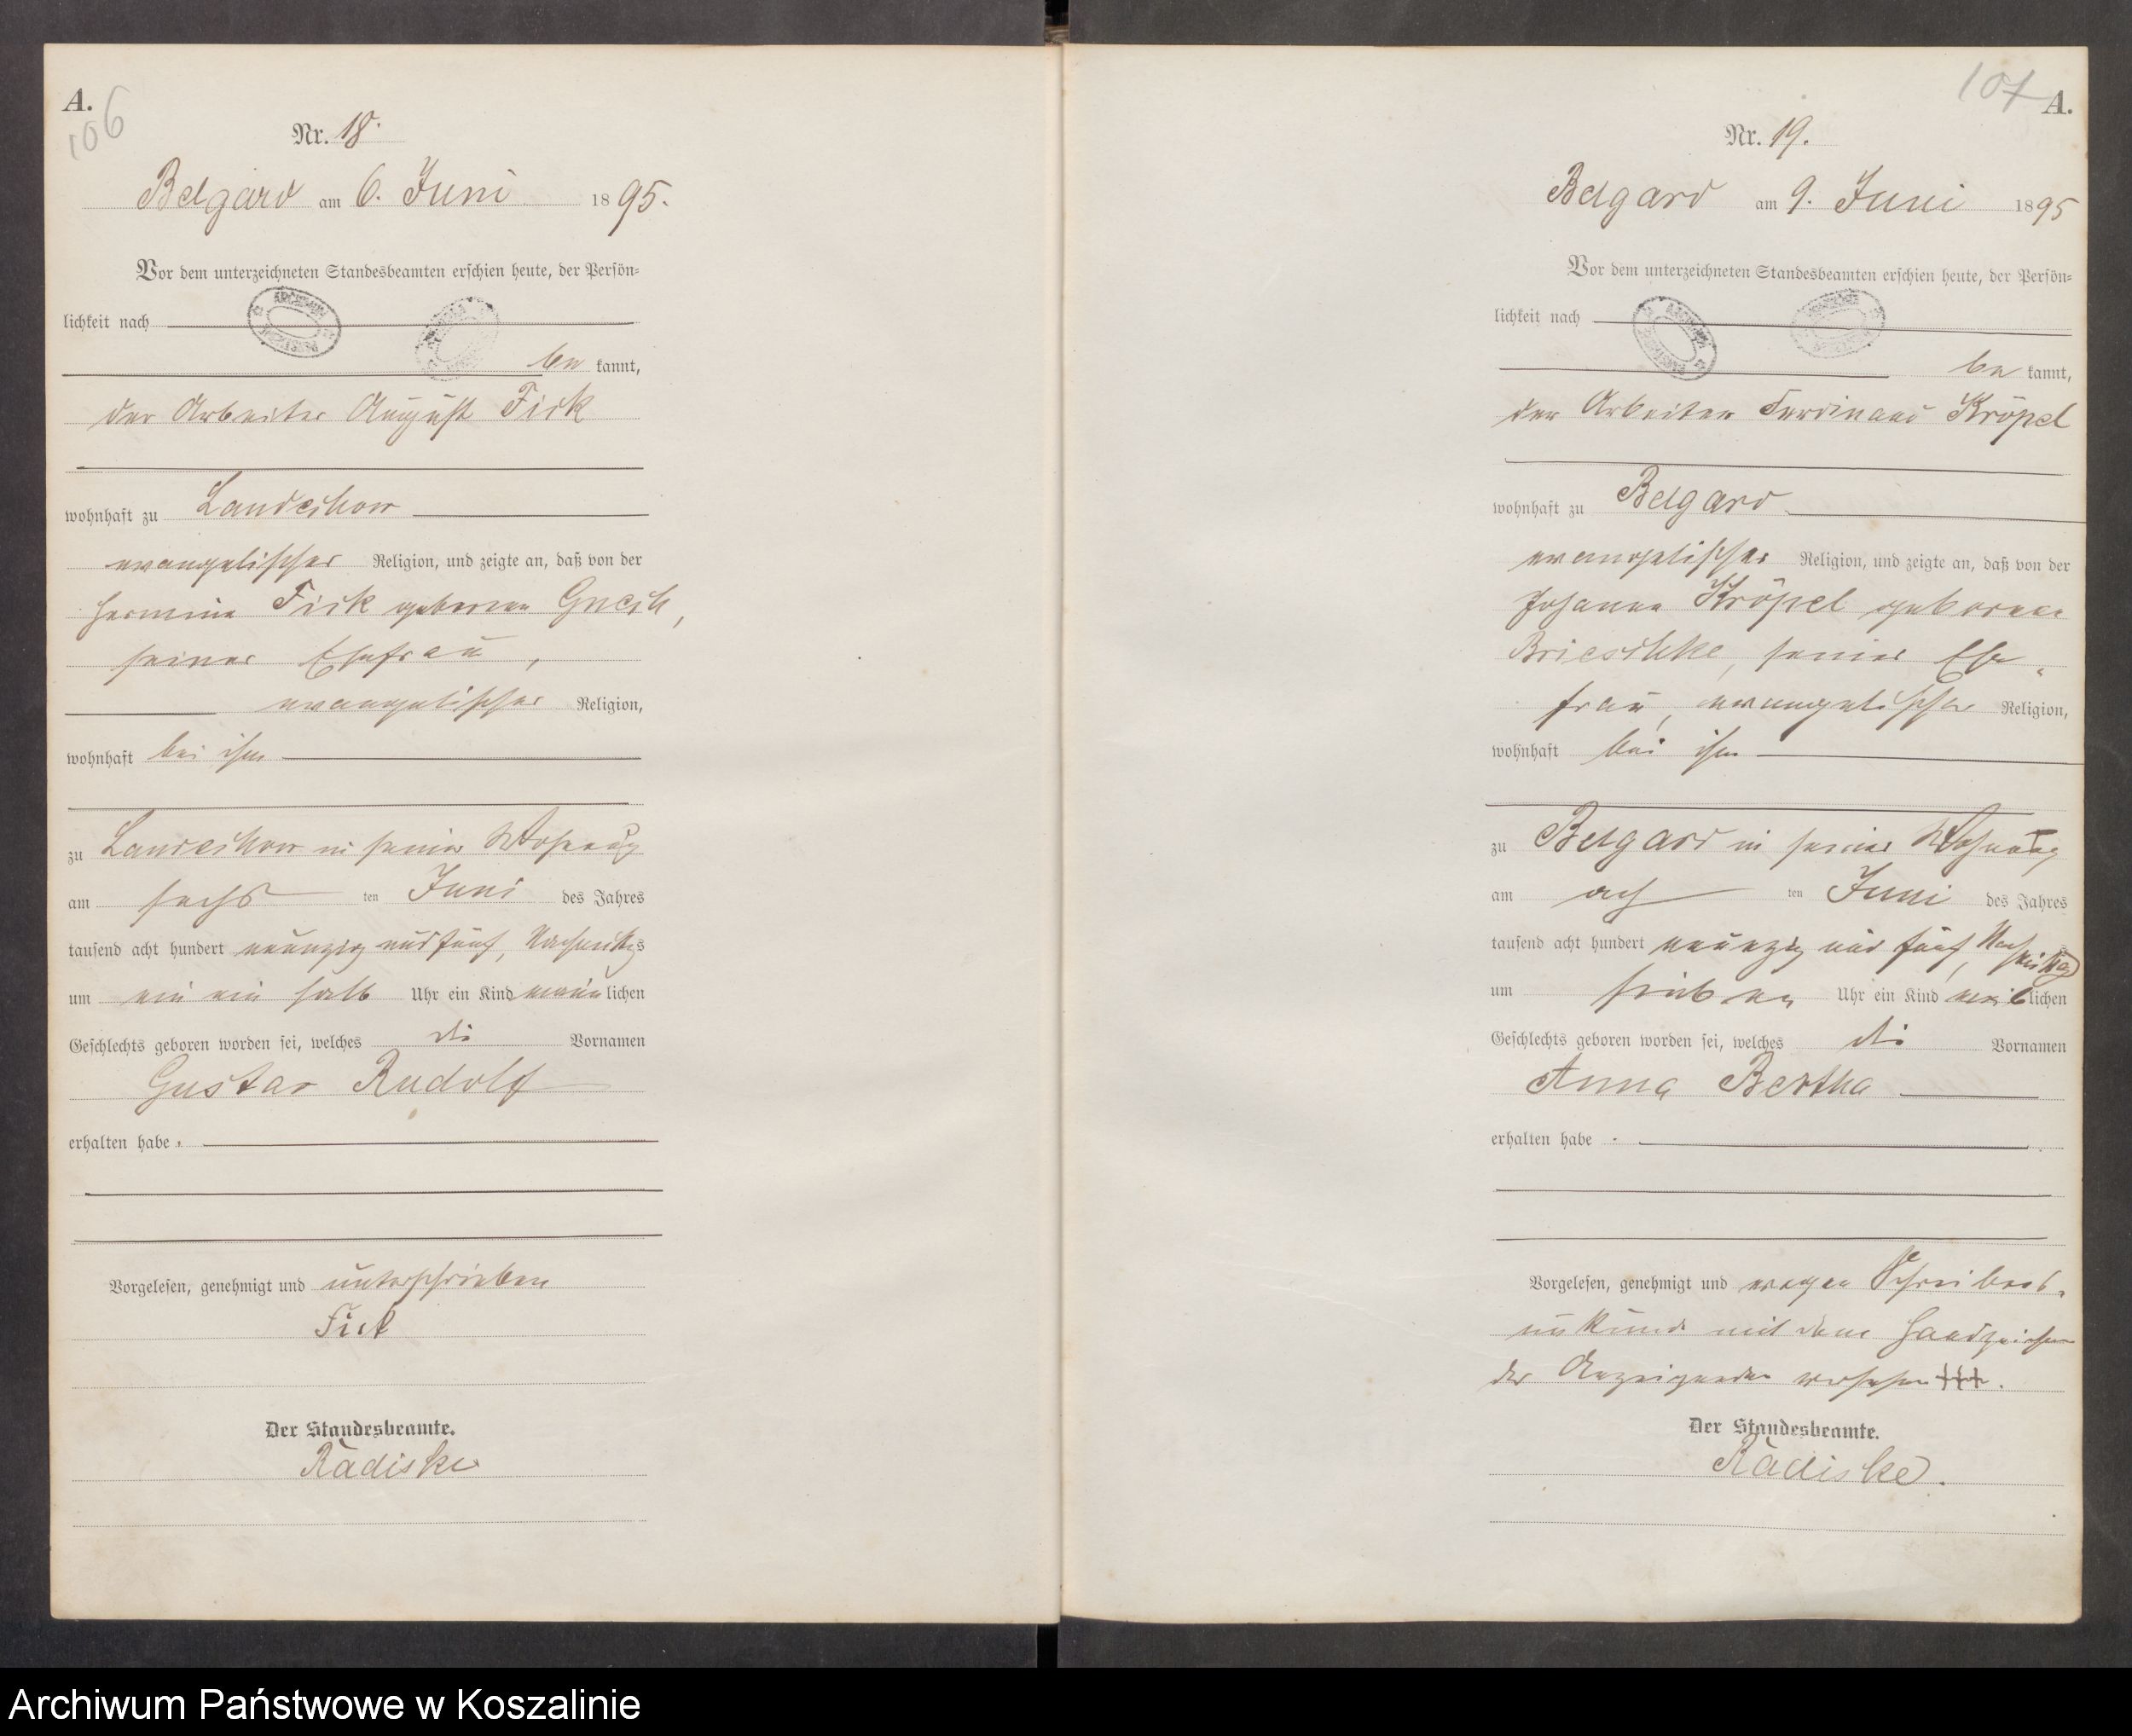 A.
106
Nr. 18.
Belgard am 6. Juni 1895.
Vor dem unterzeichneten Standesbeamten erschien heute, der Persön-
lichkeit nach
be kannt,
der Arbeiter August Fick
wohnhaft zu Landechow
evangelischer Religion, und zeigte an, daß von der
Hermine Fick geborene Gnech,
seiner Ehefrau,
evangelischer Religion,
wohnhaft bei ihm
zu Landechow in seiner Wohnung
am sechs ten Juni des Jahres
tausend acht hundert neunzig und fünf, Nachmittags
um ein ein halb Uhr ein Kind männlichen
Geschlechts geboren worden sei, welches die Vornamen
Gustav Rudolf
erhalten habe.
Vorgelesen, genehmigt und unterschrieben
Fick
Der Standesbeamte.
Radiske
107 A.
Nr. 19.
Belgard am 9. Juni 1895
Vor dem unterzeichneten Standesbeamten erschien heute, der Persön-
lichkeit nach
be kannt,
der Arbeiter Ferdinand Kröpel
wohnhaft zu Belgard
evangelischer Religion, und zeigte an, daß von der
Johanna Kröpel geborene
Brieschke, seiner Ehe-
frau, evangelischer Religion,
wohnhaft bei ihm
zu Belgard in seiner Wohnung
am ach ten Juni des Jahres
tausend acht hundert neunzig und fünf, Nachmittags
um sieben Uhr ein Kind weiblichen
Geschlechts geboren worden sei, welches die Vornamen
Anna Bertha
erhalten habe.
Vorgelesen, genehmigt und wegen Schreibens-
unkunde mit dem Handzeichen
des Anzeigenden versehen +++.
Der Standesbeamte.
Radiske.
Archiwum Państwowe w Koszalinie